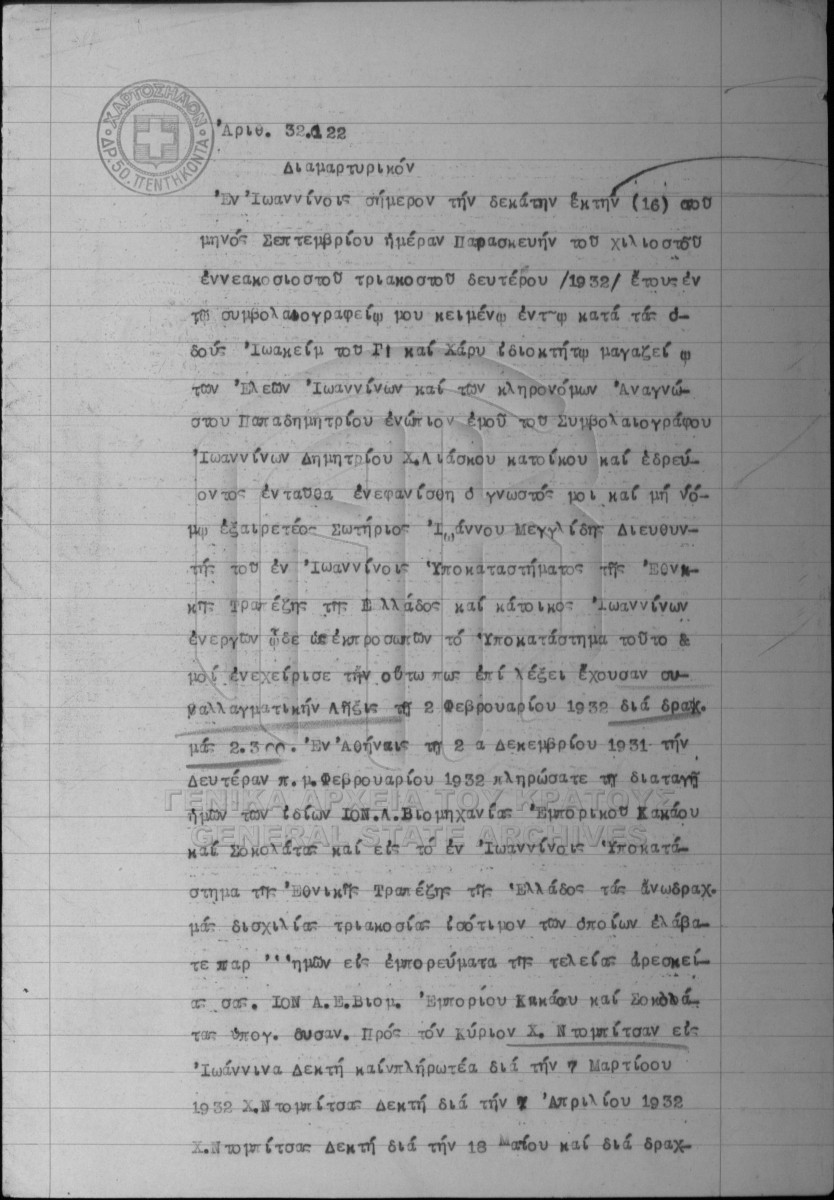 ΧΑΡΤΟΣΗΜΟΝ
ΔΡ. 50. ΠΕΝΤΗΚΟΝΤΑ
Ἀριθ. 32.122
Διαμαρτυρικόν
Ἐν Ἰωαννίνοις σήμερον τήν δεκάτην ἕκτην (16) τοῦ
μηνός Σεπτεμβρίου ἡμέραν Παρασκευήν τοῦ χιλιοστοῦ
ἐννεακοσιοστοῦ τριακοστοῦ δευτέρου /1932/ ἔτους ἐν
τῷ συμβολαιογραφείῳ μου κειμένῳ ἐνταῦθα κατά τάς ὁ-
δούς Ἰωακείμ τοῦ Γ! καί Χάρυ ἰδιοκτήτῳ μαγαζεί ῳ
τῶν Ἐλεῶν Ἰωαννίνων καί τῶν κληρονόμων Ἀναγνώ-
στου Παπαδημητρίου ἐνώπιον ἐμοῦ τοῦ Συμβολαιογράφου
Ἰωαννίνων Δημητρίου Χ.Λιάσκου κατοίκου καί ἑδρεύ-
οντος ἐνταῦθα ἐνεφανίσθη ὁ γνωστός μοι καί μή νό-
μῳ ἐξαιρετέος Σωτήριος Ἰωάννου Μεγγλίδης Διευθυν-
τής τοῦ ἐν Ἰωαννίνοις Ὑποκαταστήματος τῆς Ἐθνι-
κῆς Τραπέζης τῆς Ἑλλάδος καί κάτοικος Ἰωαννίνων
ἐνεργῶν ὧδε ὡς ἐκπροσωπῶν τό Ὑποκατάστημα τοῦτο &
μοί ἐνεχείρισε τήν οὕτω πως ἐπί λέξει ἔχουσαν συ-
ναλλαγματικήν Λῆξις τῇ 2 Φεβρουαρίου 1932 διά δραχ.
μάς 2.300. Ἐν Ἀθήναις τῇ 2 α Δεκεμβρίου 1931 τήν
Δευτέραν π.μ. Φεβρουαρίου 1932 πληρώσατε τῇ διαταγῇ
ἡμῶν τῶν ἰδίων ΙΟΝ.Λ.Βιομηχανίας Ἐμπορικοῦ Κακάου
καί Σοκολάτας καί εἰς τό ἐν Ἰωαννίνοις Ὑποκατά-
στημα τῆς Ἐθνικῆς Τραπέζης τῆς Ἑλλάδος τάς ἄνωδραχ.
μάς δισχιλίας τριακοσίας ἰσότιμον τῶν ὁποίων ἐλάβα-
τε παρ '''ημῶν εἰς ἐμπορεύματα τῆς τελείας ἀρεσκεί-
ας σας. ΙΟΝ Α.Ε.Βιομ. Ἐμπορίου Κακάου καί Σοκολά-
τας ὑπογ. δυσαν. Πρός τόν Κύριον Χ. Ντομπίτσαν εἰς
Ἰωάννινα Δεκτή καίνπλήρωτέα διά τήν 7 Μαρτίοου
1932 Χ.Ντομπίτσας Δεκτή διά τήν 7 Ἀπριλίου 1932
Χ.Ντομπίτσας Δεκτή διά τήν 18 Μαΐου καί διά δραχ-
ΓΕΝΙΚΑ ΑΡΧΕΙΑ ΤΟΥ ΚΡΑΤΟΥΣ
GENERAL STATE ARCHIVES